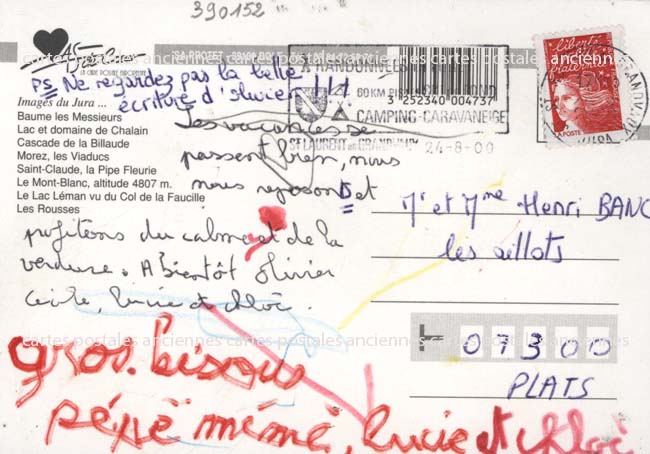 390152
PS Ne regardez pas la belle
écriture d'olivier !!!
Images du Jura ...
Baume les Messieurs
Lac et domaine de Chalain
Cascade de la Billaude
Morez, les Viaducs
Saint-Claude, la Pipe Fleurie
Le Mont-Blanc, altitude 4807 m.
Le Lac Léman vu du Col de la Faucille
Les Rousses
Les vacances se
passent bien, nous
nous reposons et
profitons du calme et de la
verdure. A bientôt Olivier
Cécile, lucie et chloé.
gros. bisous
pépé mémé, lucie et chloé
RANDONNEES
60 KM
CAMPING-CARAVANEIGE
ST LAURENT EN GRANDVAUX
24-8-00
3 252340 004737
liberté
LA POSTE
Mr et Mme Henri BANC
les aillots
07300
PLATS
cartes postales anciennes cartes postales anciennes cartes postales anciennes
cartes postales anciennes cartes postales anciennes cartes postales anciennes